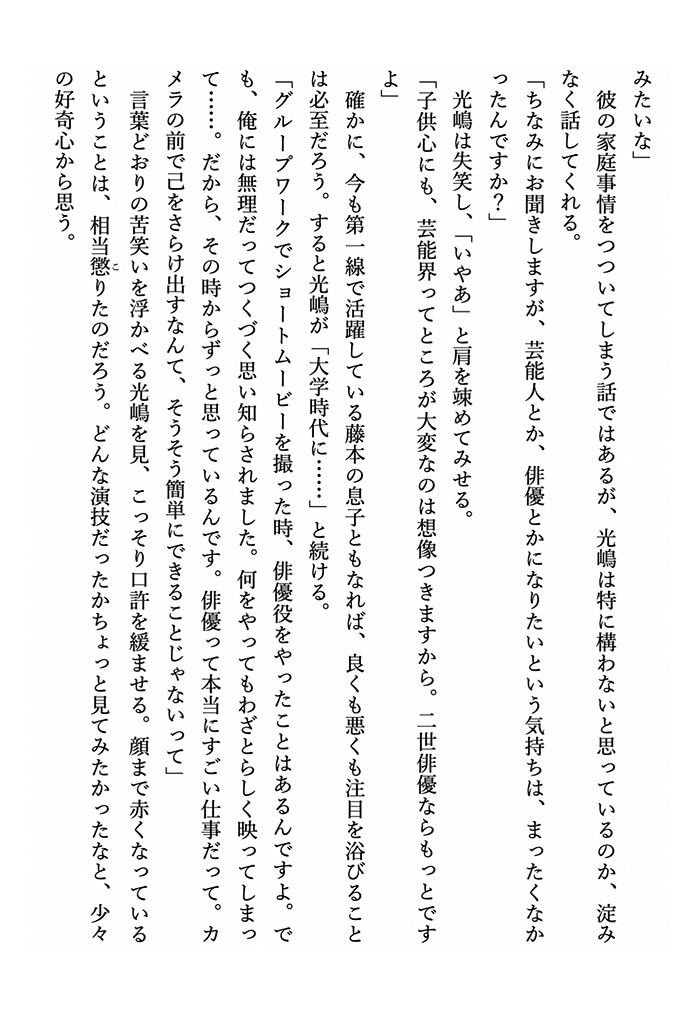 みたいな」
　彼の家庭事情をつついてしまう話ではあるが、光嶋は特に構わないと思っているのか、淀み
なく話してくれる。
「ちなみにお聞きしますが、芸能人とか、俳優とかになりたいという気持ちは、まったくなか
ったんですか？」
　光嶋は失笑し、「いやあ」と肩を竦めてみせる。
「子供心にも、芸能界ってところが大変なのは想像つきますから。二世俳優ならもっとです
よ」
　確かに、今も第一線で活躍している藤本の息子ともなれば、良くも悪くも注目を浴びること
は必至だろう。すると光嶋が「大学時代に……」と続ける。
「グループワークでショートムービーを撮った時、俳優役をやったことはあるんですよ。で
も、俺には無理だってつくづく思い知らされました。何をやってもわざとらしく映ってしまっ
て……。だから、その時からずっと思っているんです。俳優って本当にすごい仕事だって。カ
メラの前で己をさらけ出すなんて、そうそう簡単にできることじゃないって」
　言葉どおりの苦笑いを浮かべる光嶋を見、こっそり口許を緩ませる。顔まで赤くなっている
ということは、相当懲こりたのだろう。どんな演技だったかちょっと見てみたかったなと、少々
の好奇心から思う。